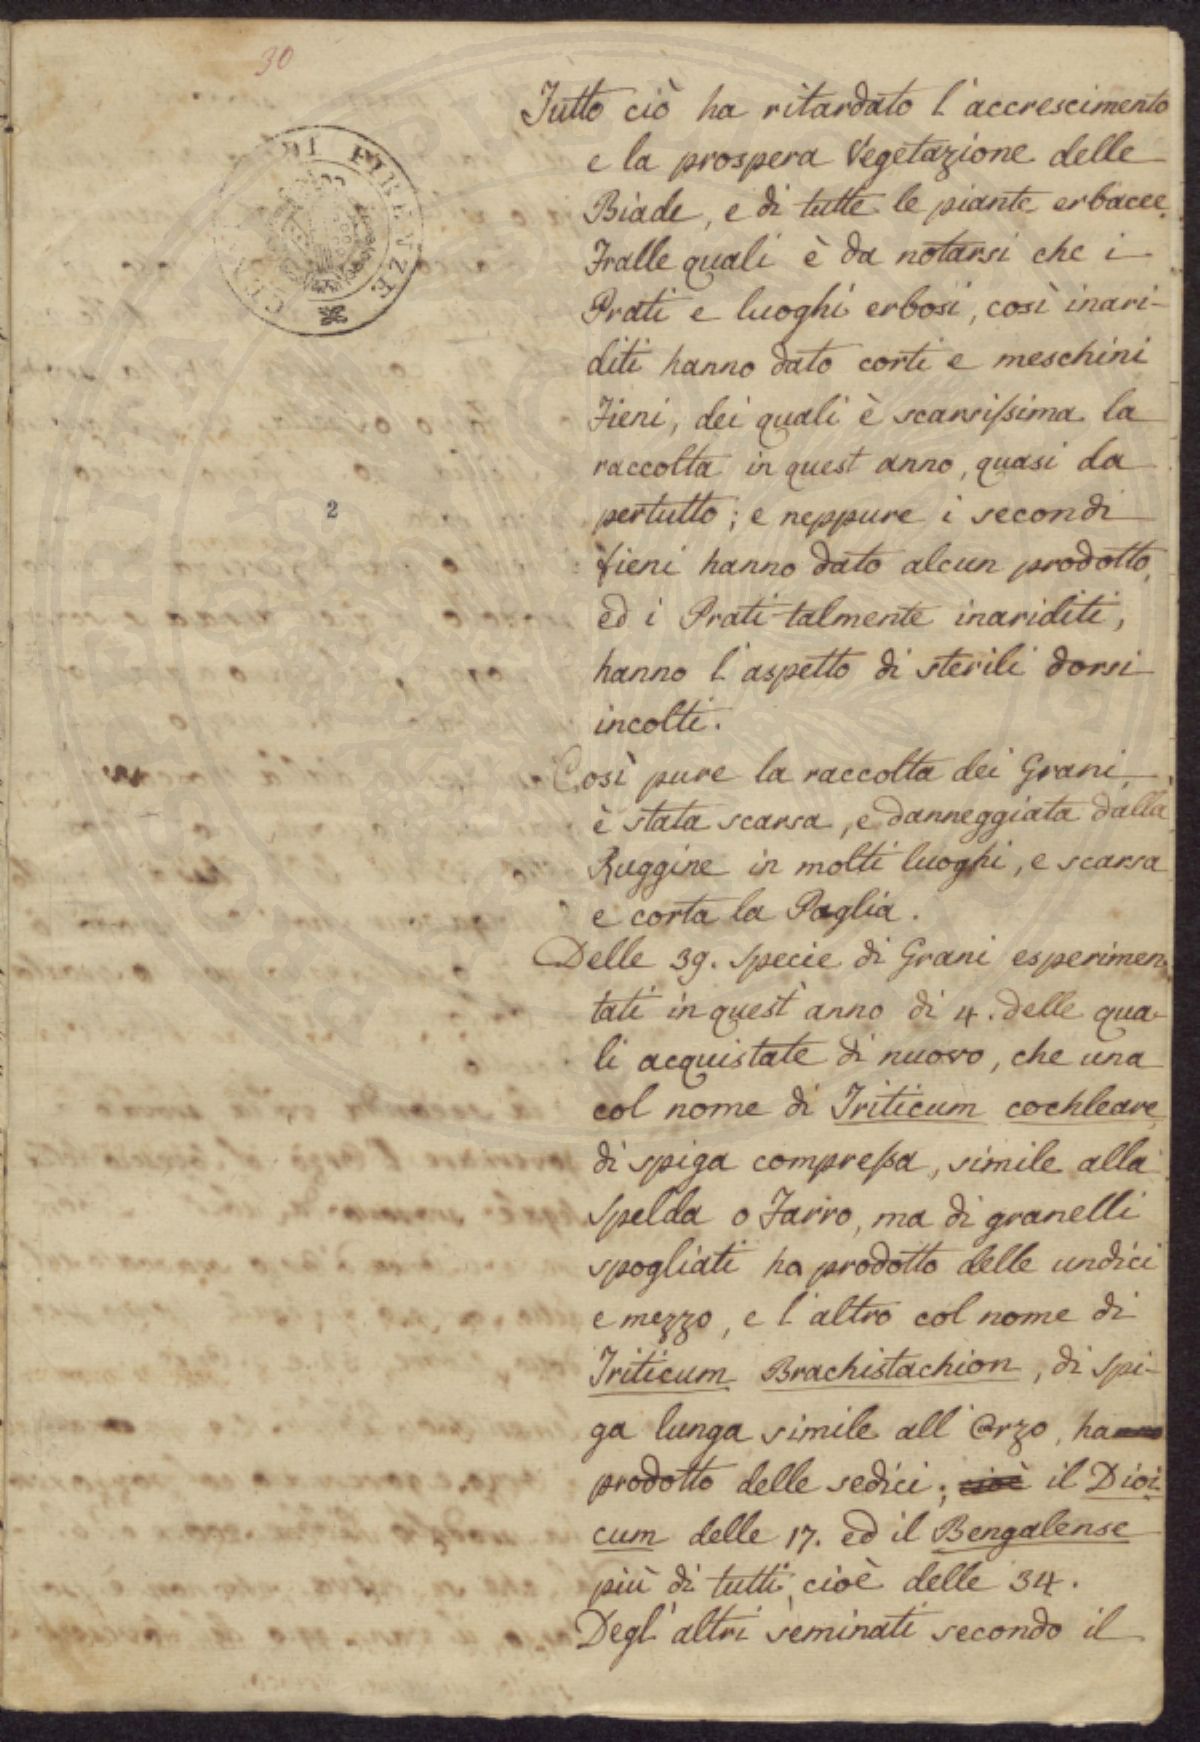 30
DI FIRENZE
2
Tutto ciò ha ritardato l'accrescimento
e la prospera Vegetazione delle
Biade, e di tutte le piante erbacee.
Fralle quali è da notarsi che i
Prati e luoghi erbosi, così inari-
diti hanno dato corti e meschini
Fieni, dei quali è scarsissima la
raccolta in quest anno, quasi da
pertutto; e neppure i secondi
fieni hanno dato alcun prodotto,
ed i Prati talmente inariditi,
hanno l'aspetto di sterili dorsi
incolti.
Così pure la raccolta dei Grani,
è stata scarsa, e danneggiata dalla
Ruggine in molti luoghi, e scarsa
e corta la Paglia.
Delle 39. Specie di Grani esperimen
tati in quest'anno di 4. delle qua-
li acquistate di nuovo, che una
col nome di Triticum cochleare,
di spiga compressa, simile alla
Spelda o Farro, ma di granelli
spogliati ha prodotto delle undici
e mezzo, e l'altro col nome di
Triticum Brachistachion, di Spi-
ga lunga simile all'Orzo, ha
prodotto delle sedici; cioè il Dioi
cum delle 17. ed il Bengalense
più di tutti, cioè delle 34.
Degl'altri seminati secondo il